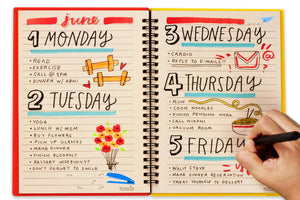 june
1 MONDAY
• READ
• EXERCISE
• CALL @ 1PM
• DINNER W/ ABHI
2 TUESDAY
• YOGA
• LUNCH W/ MOM
• BUY FLOWERS
• PICK UP GLASSES
• MAKE DINNER
• FINISH BLOGPOST
• RESTART WIREDIARY!
• DON'T FORGET TO SMILE
3 WEDNESDAY
• CARDIO
• REPLY TO E-MAILS
4 THURSDAY
• RUN
• COOK NOODLES
• FINISH PENDING WORK
• CALL
• VACUUM ROOM
5 FRIDAY
• WALK STEVE
• MAKE DINNER RESERVATION
• TREAT YOURSELF TO DESSERT